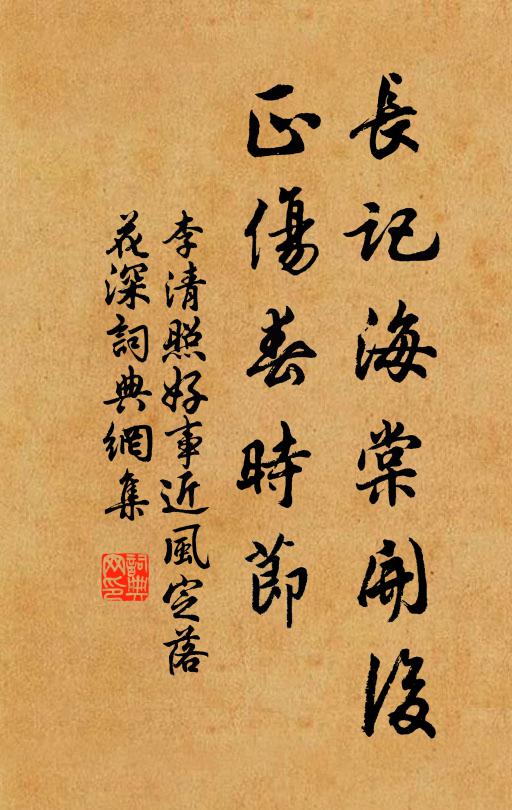 長記海棠開後
正傷春時節
李清照好事近風定落
花深詞典網集
詞典
网印